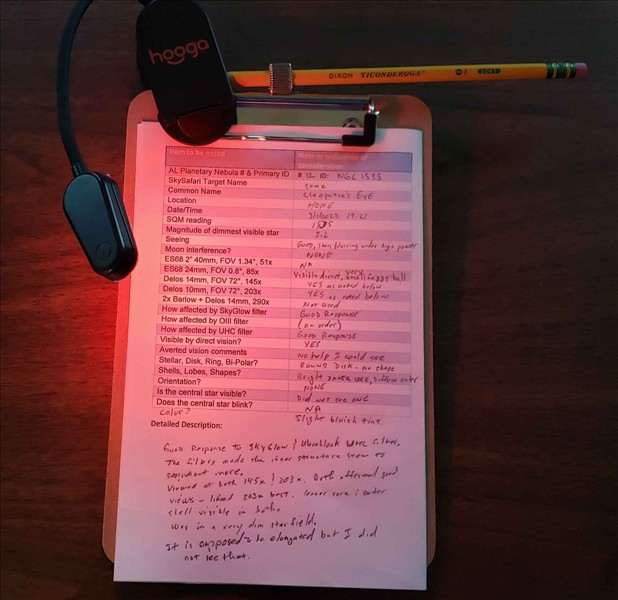 hooga
DIXON TICONDEROGA SOFT
Item to be noted
AL Planetary Nebula # & Primary ID #32 ID: NGC 1535
SkySafari Target Name same
Common Name Cleopatra's Eye
Location HOME
Date/Time 19:21
SQM reading
Magnitude of dimmest visible star
Seeing Good, stars blurring under high power
Moon interference? NONE
ES68 2" 40mm, FOV 1.34°, 51x NA
ES68 24mm, FOV 0.8°, 85x Visible direct, very small fuzzy ball
Delos 14mm, FOV 72°, 145x YES as noted below
Delos 10mm, FOV 72°, 203x YES as noted below
2x Barlow + Delos 14mm, 290x Not used
How affected by SkyGlow filter Good Response
How affected by OIII filter (on order)
How affected by UHC filter Good Response
Visible by direct vision? YES
Averted vision comments No help I could see
Stellar, Disk, Ring, Bi-Polar? Round Disk - No shape
Shells, Lobes, Shapes? Bright inner core, diffuse outer
Orientation? NONE
Is the central star visible? Did not see one
Does the central star blink? NA
Color? Slight bluish tint
Detailed Description:
Good Response to SkyGlow / Ultrablock filters.
The filters made the inner structure seem to
standout more.
Viewed at both 145x / 203x. Both offered good
views - liked 203x best. Inner core & outer
shell visible in both.
Was in a very dim starfield.
It is supposed to be elongated but I did
not see that.